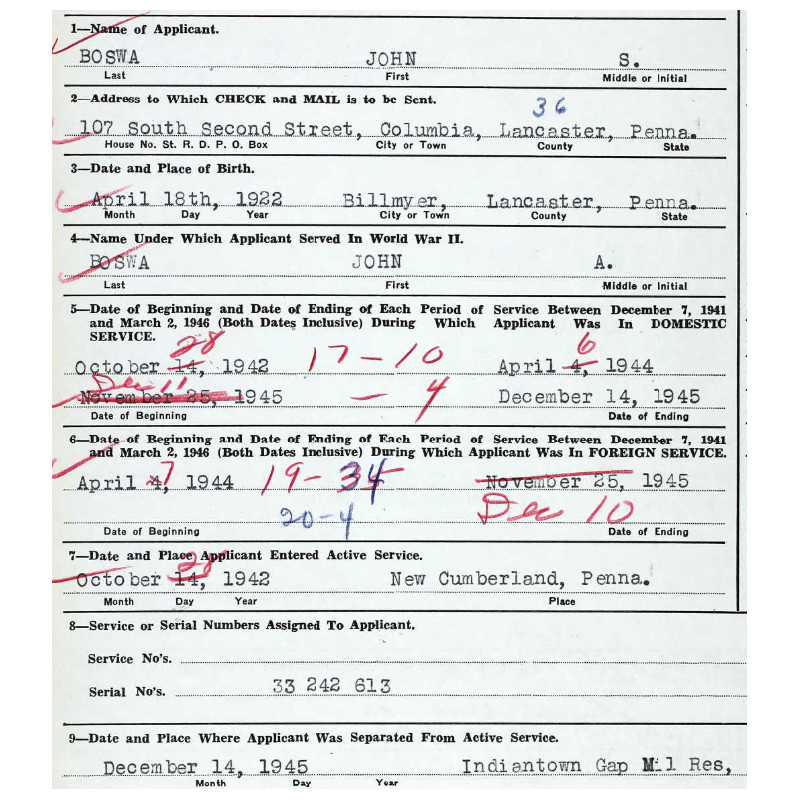 1—Name of Applicant.
BOSWA JOHN S.
Last First Middle or Initial
2—Address to Which CHECK and MAIL is to be Sent.
36
107 South Second Street, Columbia, Lancaster, Penna.
House No. St. R. D. P. O. Box City or Town County State
3—Date and Place of Birth.
April 18th, 1922 Billmyer, Lancaster, Penna.
Month Day Year City or Town County State
4—Name Under Which Applicant Served In World War II.
BOSWA JOHN A.
Last First Middle or Initial
5—Date of Beginning and Date of Ending of Each Period of Service Between December 7, 1941
and March 2, 1946 (Both Dates Inclusive) During Which Applicant Was In DOMESTIC
SERVICE.
28 6
October 14, 1942 17-10 April 4, 1944
Dec 11
November 25, 1945 - 4 December 14, 1945
Date of Beginning Date of Ending
6—Date of Beginning and Date of Ending of Each Period of Service Between December 7, 1941
and March 2, 1946 (Both Dates Inclusive) During Which Applicant Was In FOREIGN SERVICE.
April 4, 7 1944 19-34 November 25, 1945
20-4 Dec 10
Date of Beginning Date of Ending
7—Date and Place Applicant Entered Active Service.
28
October 14, 1942 New Cumberland, Penna.
Month Day Year Place
8—Service or Serial Numbers Assigned To Applicant.
Service No's.
Serial No's. 33 242 613
9—Date and Place Where Applicant Was Separated From Active Service.
December 14, 1945 Indiantown Gap Mil Res,
Month Day Year